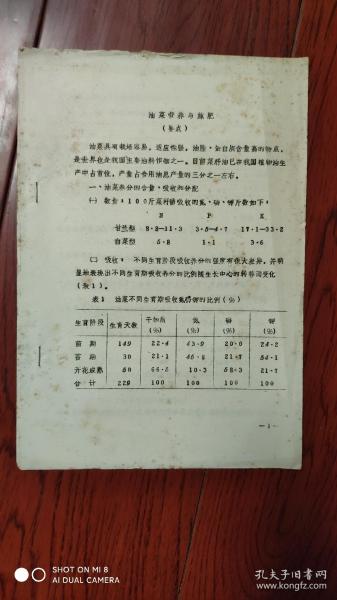 油菜营养与施肥
（要点）
油菜具有栽培容易，适应性强，油脂、蛋白质含量高的特点，
是世界也是我国主要油料作物之一。目前菜籽油已在我国植物油生
产中占首位，产量占食用油总产量的三分之一左右。
一、油菜养分的含量、吸收和分配
㈠ 数量：100斤菜籽需吸收的氮、磷、钾斤数如下：
N P K
甘兰型 8.8—11.3 3.5—4.7 17.1—33.2
白菜型 5.8 1.1 3.6
㈡ 吸收：不同生育阶段吸收养分的强度有很大差异，并明
显地表现出不同生育期吸收养分的比例随生长中心的转移而变化
（表1）。
表1 油菜不同生育期吸收氮磷钾的比例（%）
生育阶段 生育天数 干物质（%） 氮（%） 磷（%） 钾（%）
苗期 149 22.4 43.9 20.0 24.2
苔期 30 21.1 45.8 21.7 54.1
开花成熟 50 56.5 10.3 58.3 21.7
合计 229 100 100 100 100
—1—
SHOT ON MI 8
AI DUAL CAMERA
孔夫子旧书网